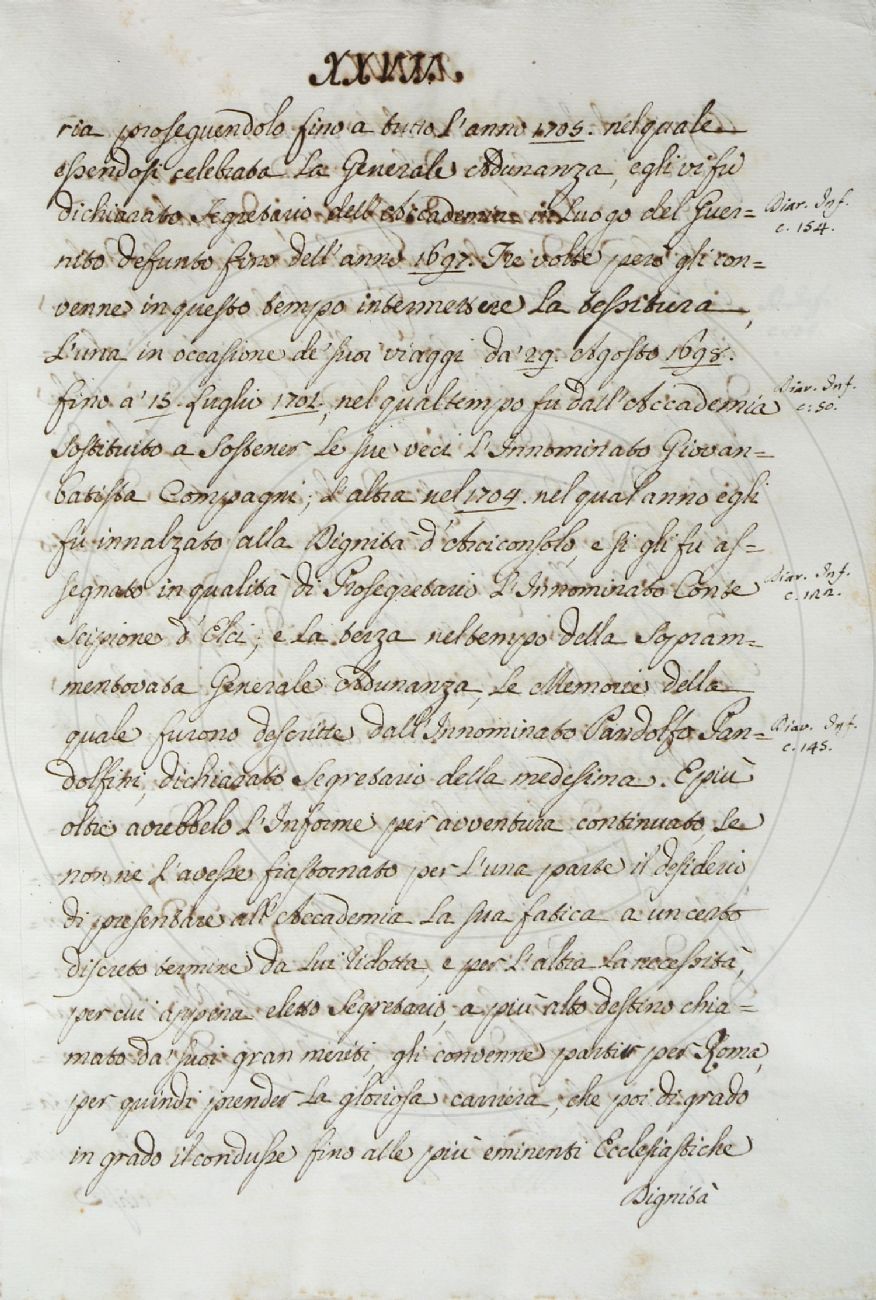 XXVIII.
ria proseguendolo fino a tutto l'anno 1705. nel quale
essendosi celebrata la Generale Adunanza, egli vi fu
dichiarato Segretario dell'Accademia in luogo del Guer=
Diar. Inf.
c. 154.
nito defunto fino dell'anno 1697. Tre volte però gli con=
venne in questo tempo intermettere la tessitura,
l'una in occasione de' suoi viaggi da' 29. Agosto 1698.
fino a' 15. Luglio 1701., nel qual tempo fu dall'Accademia
Diar. Inf.
c. 50.
sostituito a sostener le sue veci l'Innominato Giovan=
batista Compagni; l'altra nel 1704. nel qual anno egli
fu innalzato alla Dignità d'Arciconsolo, e si gli fu as=
segnato in qualità di Prosegretario l'Innominato Conte
Diar. Inf.
c. 122.
Scipione d'Elci; e la terza nel tempo della sopram=
mentovata Generale Adunanza, le Memorie della
quale furono descritte dall'Innominato Pandolfo Pan=
Diar. Inf.
c. 145.
dolfini, dichiarato Segretario della medesima. E più
oltre avrebbelo l'Informe per avventura continuato, se
non ne l'avesse frastornato per l'una parte il desiderio
di presentare all'Accademia la sua fatica a un certo
discreto termine da lui ridotta, e per l'altra la necessità,
per cui appena eletto Segretario, a più alto destino chia=
mato da' suoi gran meriti, gli convenne partir per Roma,
per quindi prender la gloriosa carriera, che poi di grado
in grado il condusse fino alle più eminenti Ecclesiastiche
Dignità